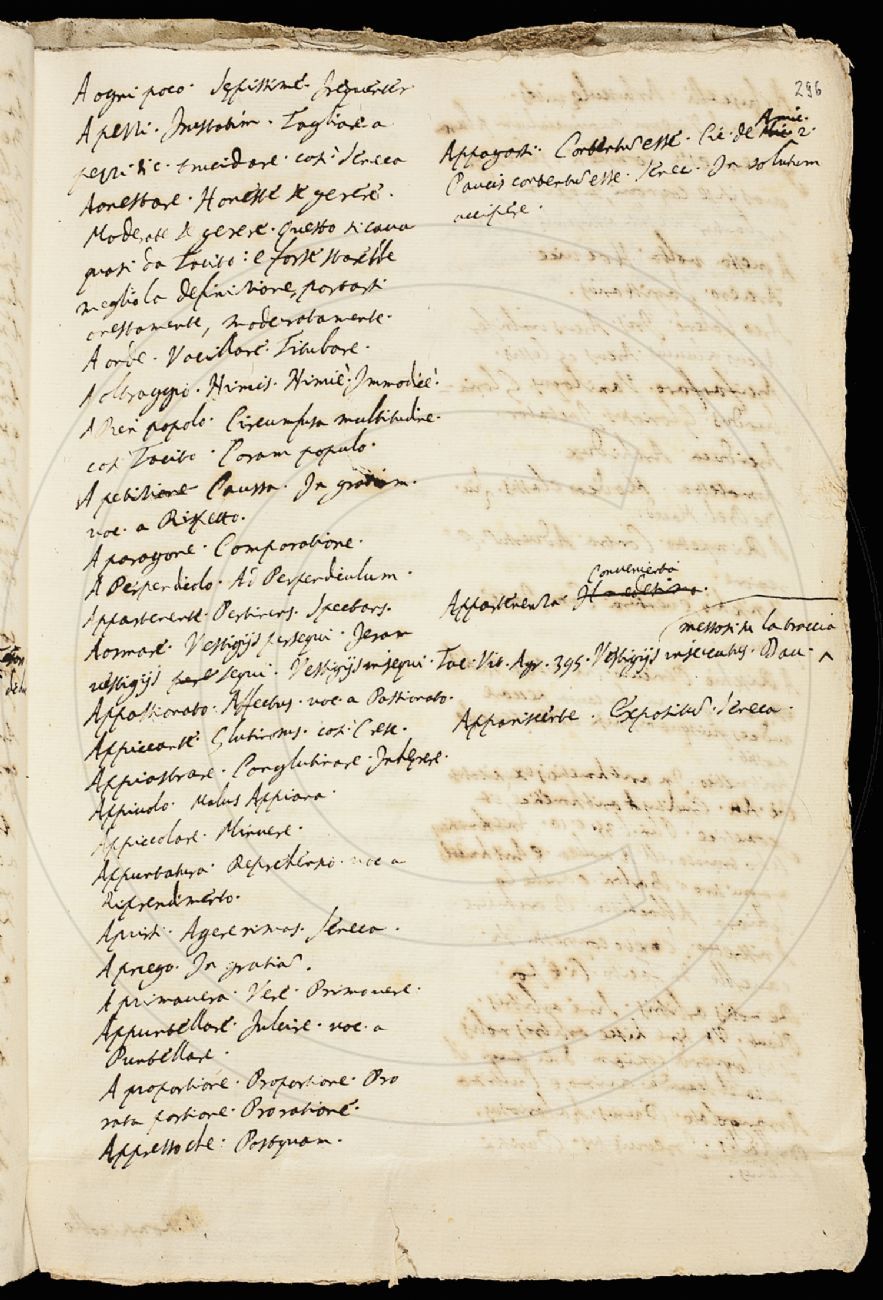 296
A ogni poco. Sępissimè. Frequenter
A pezzi. Frustatim. Tagliare a
pezzi &c. trucidare. così Seneca
Aonestare. Honestè se gerere.
Moderatè se gerere. Questo si cava
quasi da Tacito: e forse starebbe
meglio la definitione, portarsi
onestamente, moderatamente.
A onde. Vacillare. Titubare.
A oltraggio. Nimis. Nimiè. Immodicè.
A Pien popolo. Circumfusa multitudine.
così Tacito. Coram populo.
A petitione Caussa. In gratiam.
voc. a Rispetto.
A paragone. Comparatione.
A Perpendiclo. Ad Perpendiculum.
Appartenente. Pertinens. Spectans.
Aormare. Vestigijs persequi. Feram
vestigijs sequi. Vestigijs insequi. Tac. Vit. Agr. 395. Vestigijs insecutus.
Appassionato. Affectus. voc. a Passionato.
Appiccante. Glutinosus. così Cresc.
Appiastrare. Conglutinare. Integere.
Appiuolo. Malus Appiana.
Appiccolare. Minuere.
Appuntatura. Reprehensio. voc. a
Riprendimento.
A punti. Seneca.
A priego. In gratiam.
A primavera. Vere. Primo vere.
Appuntellare. Fulcire. voc. a
Puntellare.
A proportione. Proportione. Pro
rata portione. Pro ratione.
Appresso che. Postquam.
Appagarsi. Contentum esse. Cic. de Amic. 2.
Paucis contentum esse. Senec. In solutum
accipere.
Appartenenza. Convenientia
messosi su la traccia
Appariscente. Expositus. Seneca.